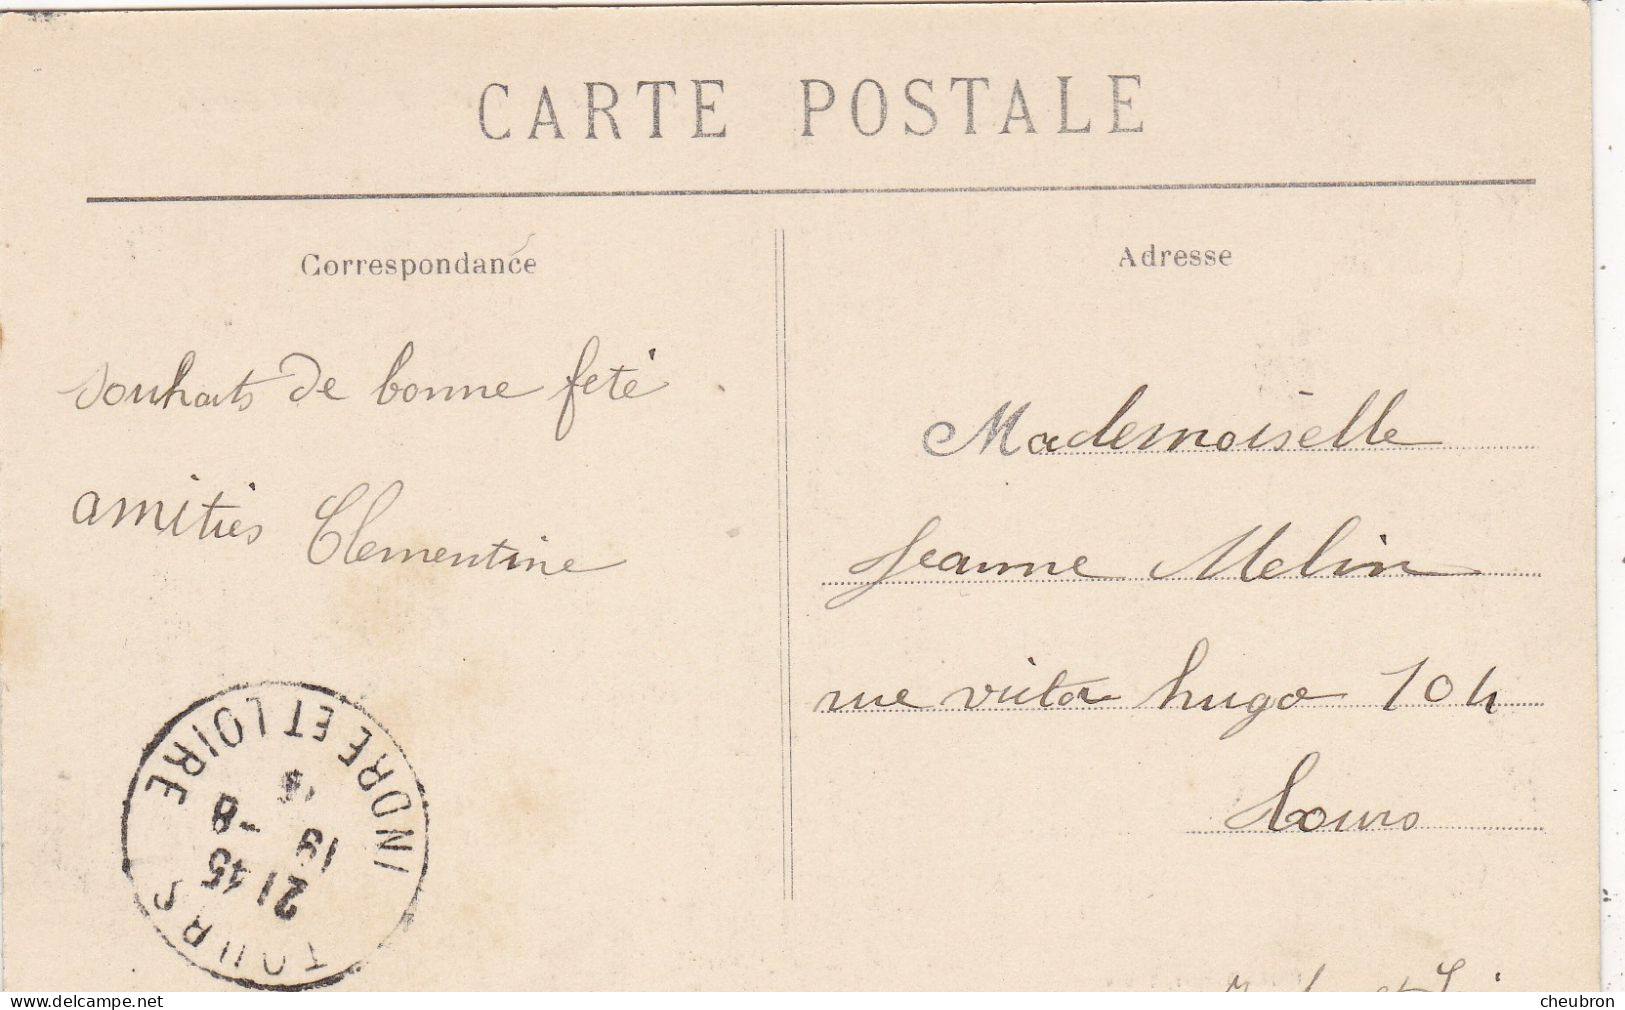 CARTE POSTALE
Correspondance
Adresse
souhaits de bonne feté
amitiés Clementine
Mademoiselle
Jeanne Melin
rue victor hugo 104
tours
INDRE ET LOIRE
21 45
19 -8
TOURS
cheubron.